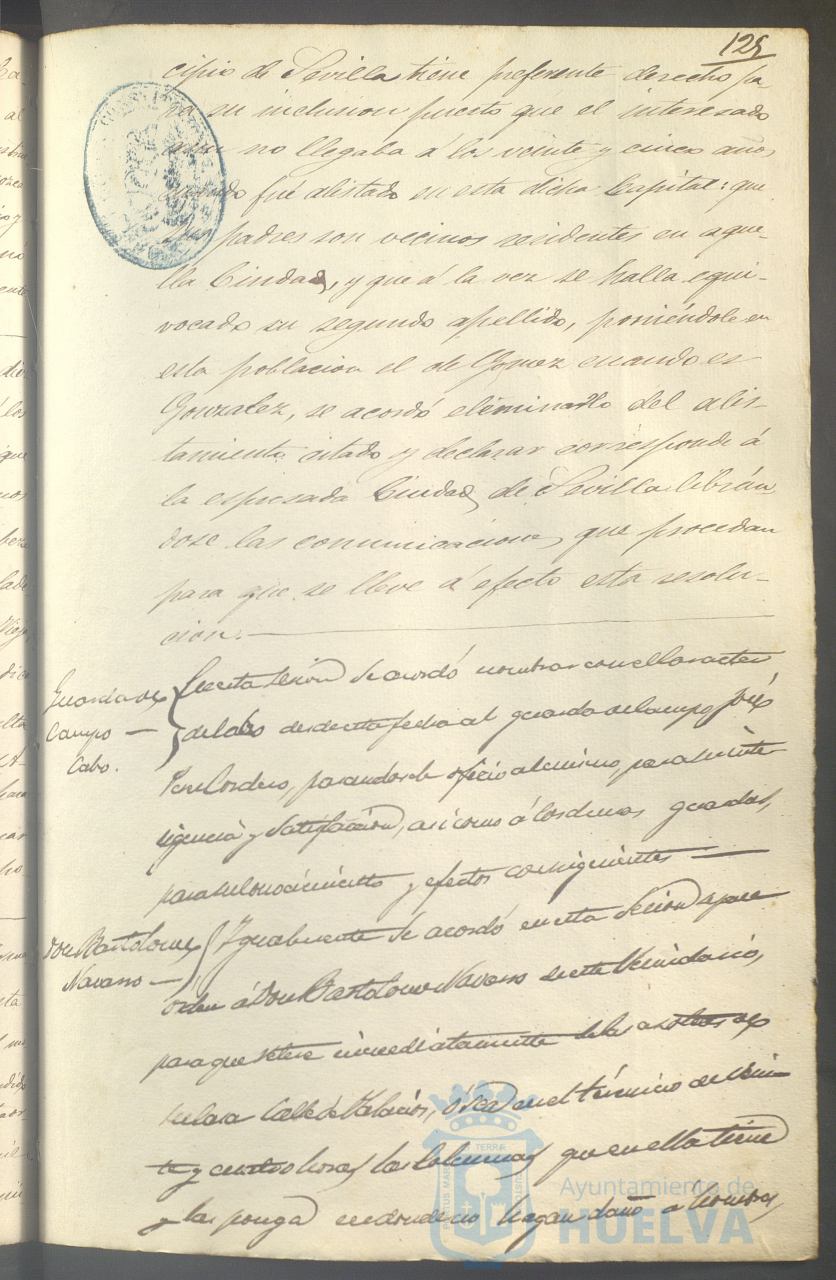 125
cipio de Sevilla tiene preferente derecho pa
ra su inclusion puesto que el interesado
aun no llegaba á los veinte y cinco años
cuando fué alistado en esta dicha Capital: que
sus padres son vecinos residentes en aque-
lla Ciudad, y que á la vez se halla equi-
vocado su segundo apellido, poniéndole en
esta poblacion el de Gomez cuando es
Gonzalez, se acordó eliminarlo del alis-
tamiento citado y declarar corresponde á
la espresada Ciudad de Sevilla librán
dose las comunicaciones que procedan
para que se lleve á efecto esta resolu-
cion.
Guarda de
Campo
Cabo.
En esta sesion se acordó nombrar con el caracter
de Cabo desde esta fecha al guarda de campo José
Cordero, pasandosele oficio al mismo, para su inte
ligencia y satisfaccion, asi como á los demas guardas,
para su conocimiento y efectos consiguientes
Don Bartolome
Navarro
Igualmente se acordó en esta sesion
orden á Don Bartolome Navarro de este Vecindario,
para que retire inmediatamente de las de
su casa Calle de Palacios, ó sea en el término de vein
te y cuatro horas las Columnas que en ella tiene
y las ponga en donde no hagan daño a
Ayuntamiento de
HUELVA